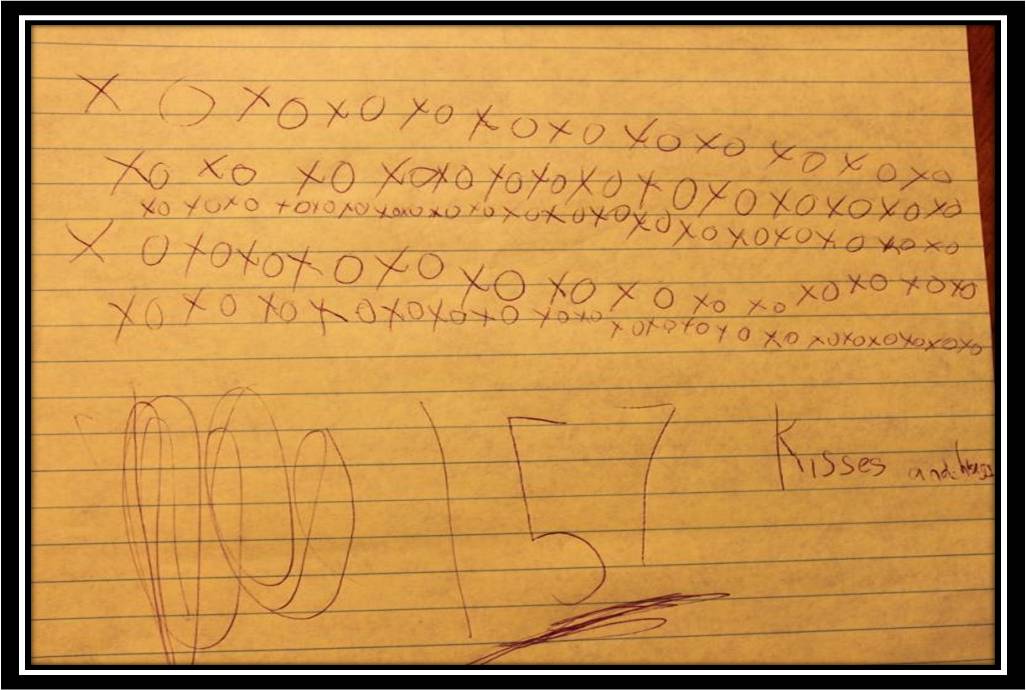 X O X O X O X O X O X O X O X O X O X O X O
XO XO XO XOXO XOXOXO X O XO XO XO XO XO
XO XOXO XOXOXOXOXOXO XO XOXOXOXO XO XOXOX O XO XO
X O XOXOX O XO XO XO X O XO XO XO XO XOXO
XO XO XO XOXOXOXO XOXO XOXOXOXO XO XOXOXOXOXOXO
157
Kisses and hugs